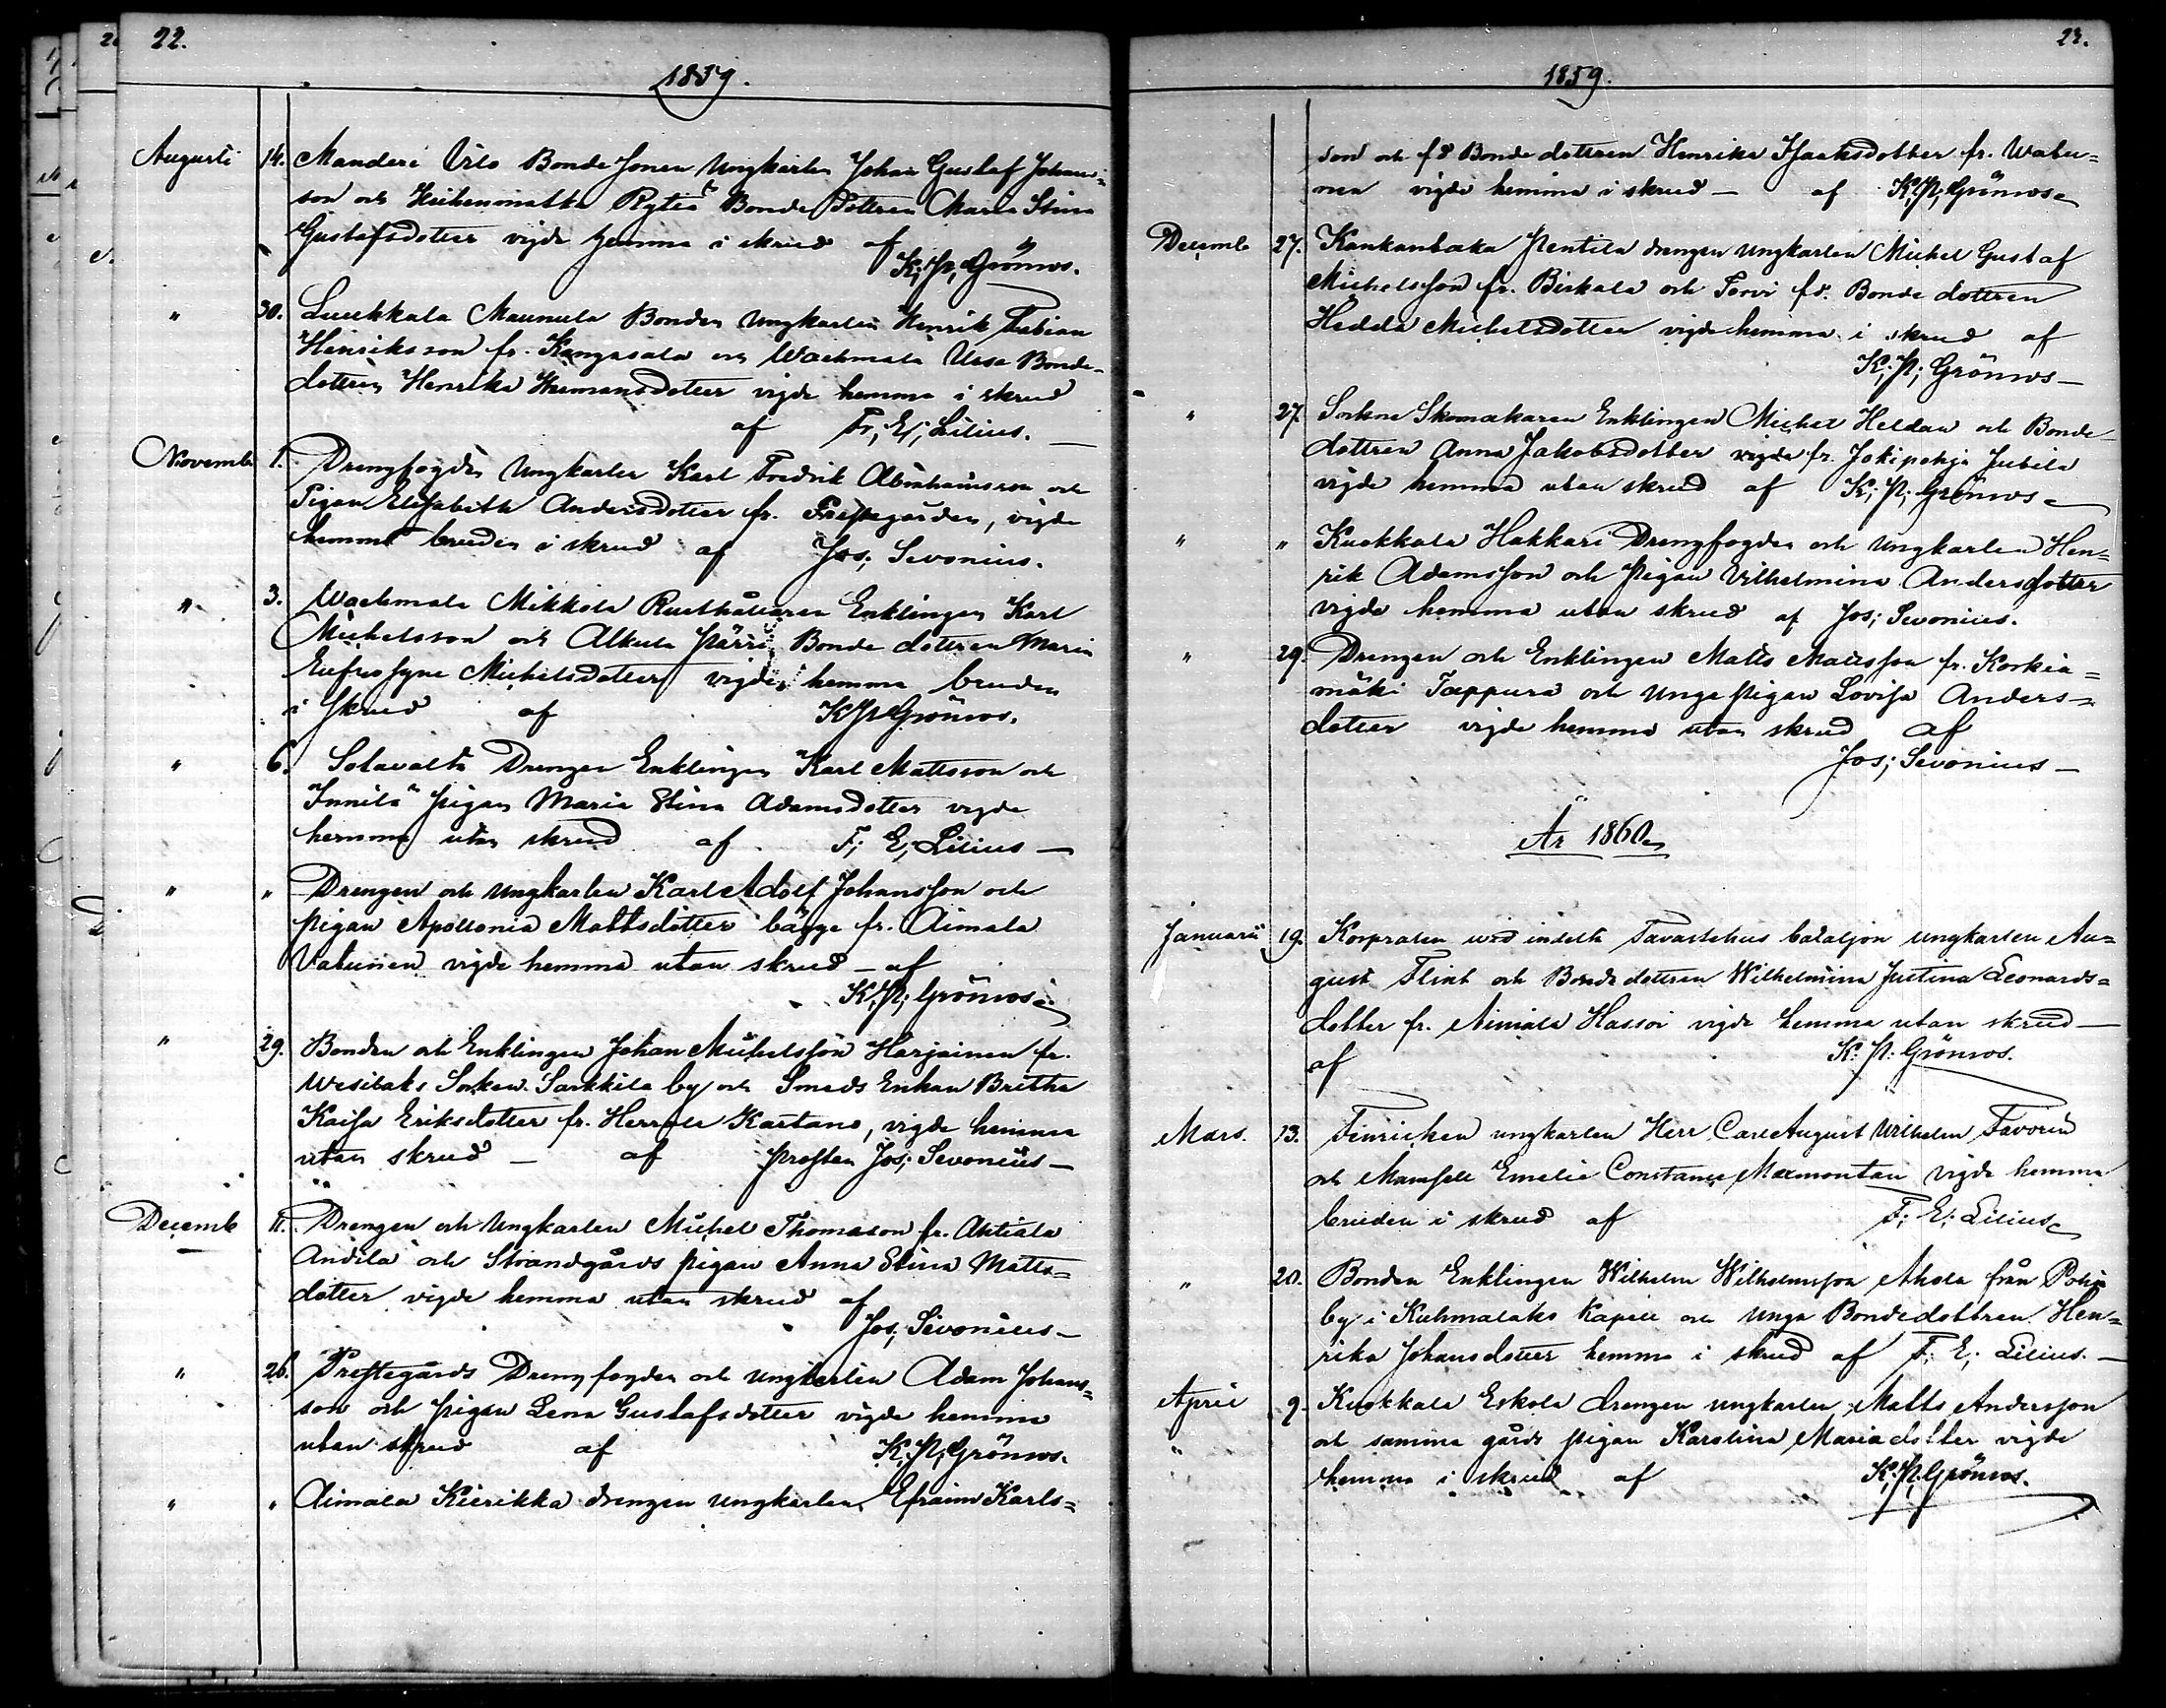 22.
1859.
Augusti 14. Manderi Bonde Sonen Ungkarlen Johan Gustaf Johans-
son och Rytiä Bonde Dottren Maria Stina
Gustafsdotter vigde hemma i skrud af
K; P; Grönvos.
" 30. Luukkala Maunula Bonden Ungkarlen Henrik Fabian
Henriksson fr. Kangasala och Wachmala Bonde-
dottren Henrika Hermansdotter vigde hemma i skrud
af Fr, E; Lilius. —
Novemb 1. Drengfogden Ungkarlen Karl Fredrik Abrahamsson och
Pigan Elisabeth Andersdotter fr. Prestegården, vigde
hemma bruden i skrud af Jos; Sevonius.
" 3. Wachmala Mikkola Rusthållaren Enklingen Karl
Michelsson och Alkula Pärri Bonde dottren Maria
Eufrosyne Michelsdotter vigde hemma bruden
i skrud af K P Grönvos.
" 6. Solavalta Drengen Enklingen Karl Mattsson och
Innilä pigan Maria Stina Adamsdotter vigde
hemma utan skrud af F; E; Lilius —
" " Drengen och Ungkarlen Karl Adolf Johansson och
pigan Apollonia Mattsdotter bägge fr. Aimala
Vatunen vigde hemma utan skrud — af
K; P; Grönvos
" 29. Bonden och Enklingen Johan Michelsson Harjainen fr.
Wesilaks Socken Sarkkila by och Smeds Enkan Britha
Kaisa Eriksdotter fr. Herrala Kartano, vigde hemma
utan skrud — af Prosten Jos; Sevonius —
Decemb 11. Drengen och Ungkarlen Michel Thomasson fr. Ahtiala
Andila och Strandgårds pigan Anna Stina Matts=
dotter vigde hemma utan skrud af
Jos; Sevonius —
" 26. Prestegårds Drengfogden och ungkarlen Adam Johans=
son och pigan Lena Gustafsdotter vigde hemma
utan skrud af K; P; Grönvos.
" " Aimala Kierikka drengen ungkarlen Efraim Karls=
23.
1859.
son och fd Bonde dottren Henrika Isaaksdotter fr. Watu=
nen vigde hemma i skrud — af K; P; Grönvos
Decemb 27. Kankanbaka Pentila drengen ungkarlen Michel Gustaf
Michelsson fr. Birkala och Torvi fd. Bonde dottren
Hedda Michelsdotter vigde hemma i skrud af
K; P; Grönvos —
" 27. Sockne Skomakaren Enklingen Michel Heldan och Bonde
dottren Anna Jakobsdotter vigde fr. Jokipohja Jutila
vigde hemma utan skrud af K; P; Grönvos
" " Kuokkala Hakkari Drengfogden och Ungkarlen Hen=
rik Adamsson och Pigan Vilhelmina Andersdotter
vigde hemma utan skrud af Jos; Sevonius.
" 29. Drengen och Enklingen Matts Mattsson fr. Korkia=
mäki Tappura och Unga pigan Lovisa Anders=
dotter vigde hemma utan skrud af
Jos; Sevonius —
År 1860
Januarii 19. Korpralen wid indelta Tavastehus bataljon ungkarlen Au=
gust Flint och Bonde dottren Wilhelmina Justina Leonards=
dotter fr. Aimala Hassoi vigde hemma utan skrud —
af K: P: Grönvos.
Mars. 13. Fenricken ungkarlen Herr Carl August Wilhelm Favorin
och Mamsell Emelie Constance Maxmontan vigde hemma
bruden i skrud af F; E; Lilius
" 20. Bonden Enklingen Wilhelm Wilhelmsson Ahola från Pohja
by i Kuhmalaks Kapell och Unga Bondedottren Hen=
rika Johansdotter hemma i skrud af F; E; Lilius. —
April 9. Kuokkala Eskola drengen ungkarlen Matts Andersson
" och samma gårds pigan Karolina Mariadotter vigde
hemma i skrud af K; P; Grönvos.